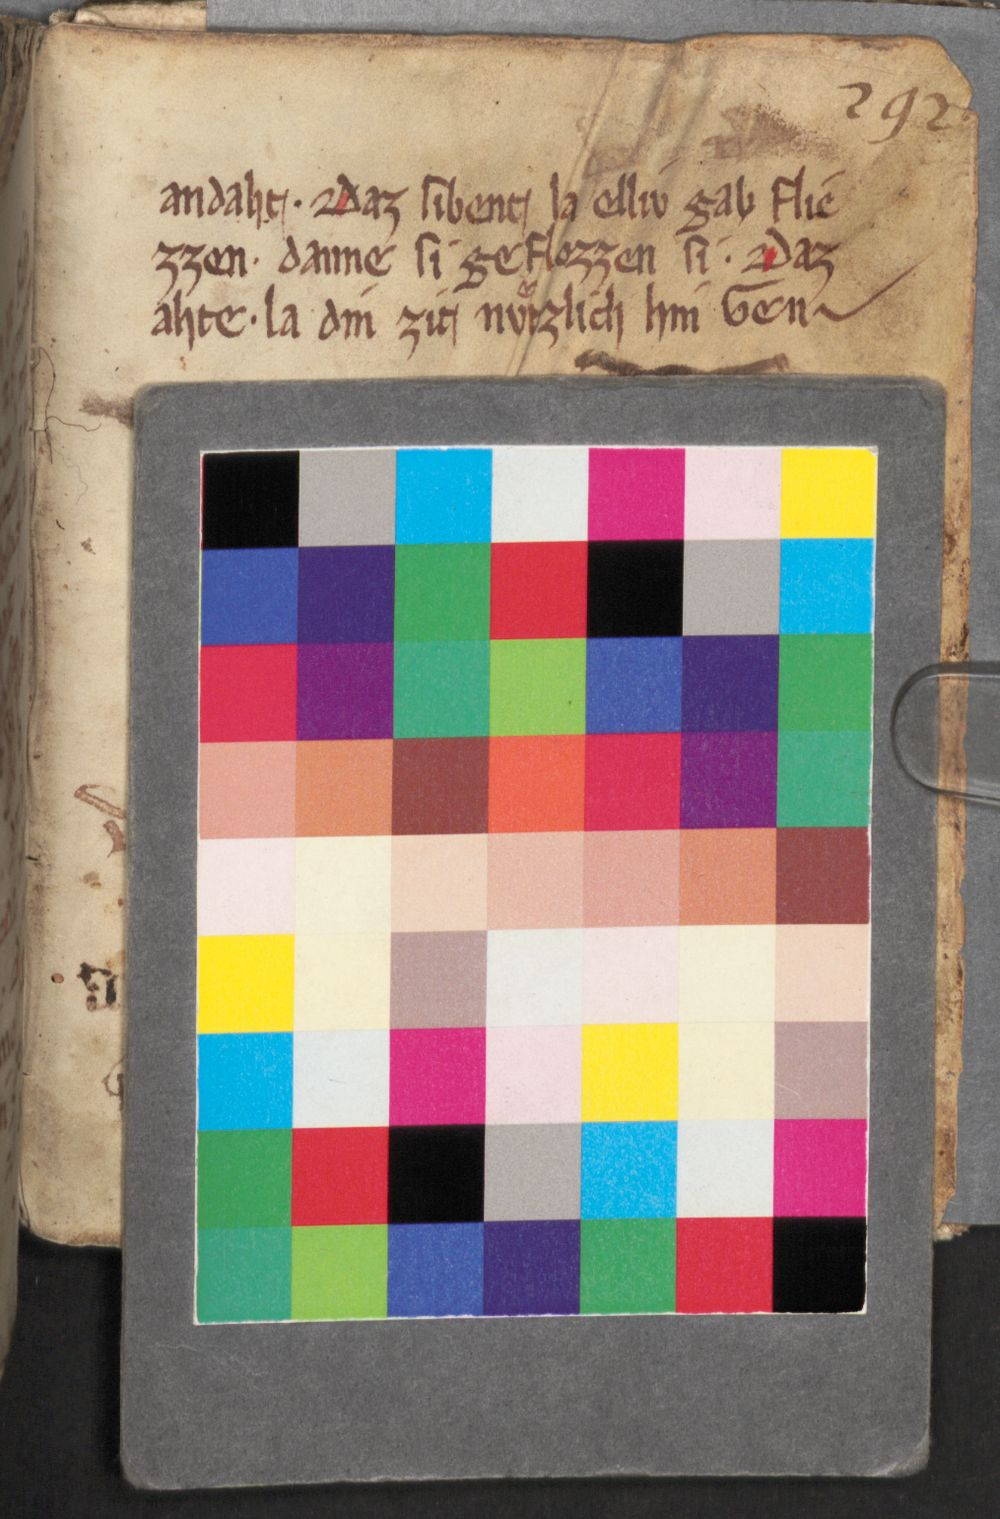 292
andaht· Daz sibent la elliv gab flie
zzen· danne si geflozzen si· Daz
ahte· la din zit nvͦtzlich hin gen